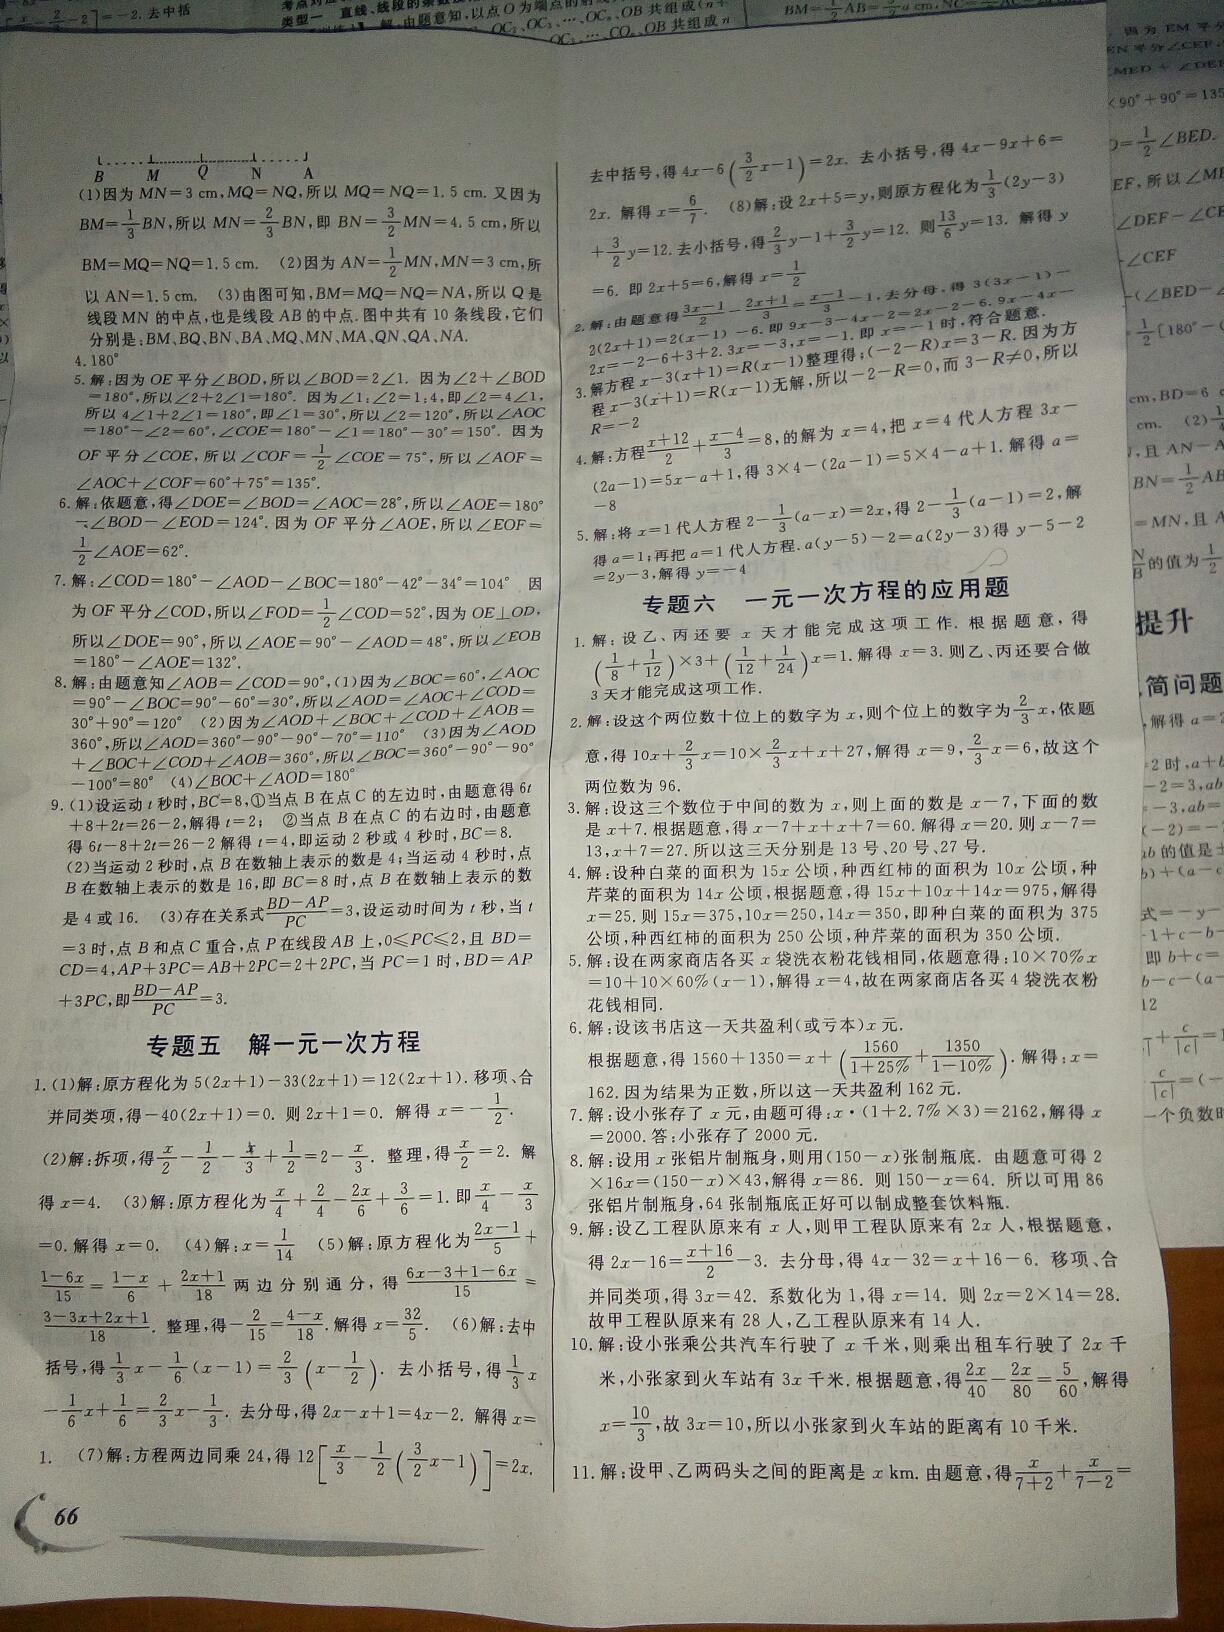 B M Q N A
(1)因为 MN=3 cm,MQ=NQ,所以 MQ=NQ=1.5 cm. 又因为
BM=1/3BN,所以 MN=2/3BN,即 BN=3/2MN=4.5 cm,所以
BM=MQ=NQ=1.5 cm. (2)因为 AN=1/2MN,MN=3 cm,所
以 AN=1.5 cm. (3)由图可知,BM=MQ=NQ=NA,所以 Q 是
线段 MN 的中点,也是线段 AB 的中点.图中共有 10 条线段,它们
分别是:BM、BQ、BN、BA、MQ、MN、MA、QN、QA、NA.
4.180°
5.解:因为 OE 平分∠BOD,所以∠BOD=2∠1. 因为∠2+∠BOD
=180°,所以∠2+2∠1=180°. 因为∠1:∠2=1:4,即∠2=4∠1,
所以 4∠1+2∠1=180°,即∠1=30°,所以∠2=120°,所以∠AOC
=180°-∠2=60°,∠COE=180°-∠1=180°-30°=150°. 因为
OF 平分∠COE,所以∠COF=1/2∠COE=75°,所以∠AOF=
∠AOC+∠COF=60°+75°=135°.
6.解:依题意,得∠DOE=∠BOD=∠AOC=28°,所以∠AOE=180°
-∠BOD-∠EOD=124°.因为 OF 平分∠AOE,所以∠EOF=
1/2∠AOE=62°.
7.解:∠COD=180°-∠AOD-∠BOC=180°-42°-34°=104° 因
为 OF 平分∠COD,所以∠FOD=1/2∠COD=52°,因为 OE⊥OD,
所以∠DOE=90°,所以∠AOE=90°-∠AOD=48°,所以∠EOB
=180°-∠AOE=132°.
8.解:由题意知∠AOB=∠COD=90°,(1)因为∠BOC=60°,∠AOC
=90°-∠BOC=90°-60°=30°,所以∠AOD=∠AOC+∠COD=
30°+90°=120° (2)因为∠AOD+∠BOC+∠COD+∠AOB=
360°,所以∠AOD=360°-90°-90°-70°=110° (3)因为∠AOD
+∠BOC+∠COD+∠AOB=360°,所以∠BOC=360°-90°-90°
-100°=80° (4)∠BOC+∠AOD=180°
9.(1)设运动 t 秒时,BC=8,①当点 B 在点 C 的左边时,由题意得 6t
+8+2t=26-2,解得 t=2; ②当点 B 在点 C 的右边时,由题意
得 6t-8+2t=26-2 解得 t=4,即运动 2 秒或 4 秒时,BC=8.
(2)当运动 2 秒时,点 B 在数轴上表示的数是 4;当运动 4 秒时,点
B 在数轴上表示的数是 16,即 BC=8 时,点 B 在数轴上表示的数
是 4 或 16. (3)存在关系式(BD-AP)/PC=3,设运动时间为 t 秒,当 t
=3 时,点 B 和点 C 重合,点 P 在线段 AB 上,0⩽PC⩽2,且 BD=
CD=4,AP+3PC=AB+2PC=2+2PC,当 PC=1 时,BD=AP
+3PC,即(BD-AP)/PC=3.
专题五 解一元一次方程
1.(1)解:原方程化为 5(2x+1)-33(2x+1)=12(2x+1).移项、合
并同类项,得-40(2x+1)=0. 则 2x+1=0. 解得 x=-1/2.
(2)解:拆项,得x/2-1/2-x/3+1/2=2-x/3. 整理,得x/2=2. 解
得 x=4. (3)解:原方程化为x/4+2/4-2x/6+3/6=1. 即x/4-x/3
=0.解得 x=0. (4)解:x=1/14 (5)解:原方程化为(2x-1)/5+
(1-6x)/15=(1-x)/6+(2x+1)/18 两边分别通分,得(6x-3+1-6x)/15=
(3-3x+2x+1)/18. 整理,得-2/15=(4-x)/18.解得 x=32/5. (6)解:去中
括号,得1/3x-1/6(x-1)=2/3(x-1/2). 去小括号,得1/3x
-1/6x+1/6=2/3x-1/3. 去分母,得 2x-x+1=4x-2. 解得 x=
1. (7)解:方程两边同乘 24,得 12[x/3-1/2(3/2x-1)]=2x.
66
去中括号,得 4x-6(3/2x-1)=2x. 去小括号,得 4x-9x+6=
2x. 解得 x=6/7. (8)解:设 2x+5=y,则原方程化为1/3(2y-3)
+3/2y=12.去小括号,得2/3y-1+3/2y=12. 则13/6y=13. 解得 y
=6. 即 2x+5=6,解得 x=1/2
2.解:由题意得(3x-1)/2-(2x+1)/3=(x-1)/3-1,去分母,得 3(3x-1)-
2(2x+1)=2(x-1)-6.即 9x-3-4x-2=2x-2-6.9x-4x-
2x=-2-6+3+2.3x=-3,x=-1.即 x=-1 时,符合题意.
3.解方程 x-3(x+1)=R(x-1)整理得:(-2-R)x=3-R.因为方
程 x-3(x+1)=R(x-1)无解,所以-2-R=0,而 3-R≠0,所以
R=-2
4.解:方程(x+12)/2+(x-4)/3=8,的解为 x=4,把 x=4 代人方程 3x-
(2a-1)=5x-a+1,得 3×4-(2a-1)=5×4-a+1.解得 a=
-8
5.解:将 x=1代人方程 2-1/3(a-x)=2x,得 2-1/3(a-1)=2,解
得 a=1;再把 a=1代人方程.a(y-5)-2=a(2y-3)得 y-5-2
=2y-3,解得 y=-4
专题六 一元一次方程的应用题
1.解:设乙、丙还要 x 天才能完成这项工作. 根据题意,得
(1/8+1/12)×3+(1/12+1/24)x=1.解得 x=3.则乙、丙还要合做
3 天才能完成这项工作.
2.解:设这个两位数十位上的数字为 x,则个位上的数字为2/3x,依题
意,得 10x+2/3x=10×2/3x+x+27,解得 x=9,2/3x=6,故这个
两位数为 96.
3.解:设这三个数位于中间的数为 x,则上面的数是 x-7,下面的数
是 x+7.根据题意,得 x-7+x+x+7=60.解得 x=20.则 x-7=
13,x+7=27.所以这三天分别是 13 号、20 号、27 号.
4.解:设种白菜的面积为 15x 公顷,种西红柿的面积为 10x 公顷,种
芹菜的面积为 14x 公顷,根据题意,得 15x+10x+14x=975,解得
x=25.则 15x=375,10x=250,14x=350,即种白菜的面积为 375
公顷,种西红柿的面积为 250 公顷,种芹菜的面积为 350 公顷.
5.解:设在两家商店各买 x 袋洗衣粉花钱相同,依题意得:10×70%x
=10+10×60%(x-1),解得 x=4,故在两家商店各买 4 袋洗衣粉
花钱相同.
6.解:设该书店这一天共盈利(或亏本)x 元.
根据题意,得 1560+1350=x+(1560/(1+25%)+1350/(1-10%)).解得:x=
162.因为结果为正数,所以这一天共盈利 162 元.
7.解:设小张存了 x 元,由题可得:x·(1+2.7%×3)=2162,解得 x
=2000.答:小张存了 2000 元.
8.解:设用 x 张铝片制瓶身,则用(150-x)张制瓶底. 由题意可得 2
×16x=(150-x)×43,解得 x=86. 则 150-x=64. 所以可用 86
张铝片制瓶身,64 张制瓶底正好可以制成整套饮料瓶.
9.解:设乙工程队原来有 x 人,则甲工程队原来有 2x 人,根据题意,
得 2x-16=(x+16)/2-3. 去分母,得 4x-32=x+16-6. 移项、合
并同类项,得 3x=42. 系数化为 1,得 x=14. 则 2x=2×14=28.
故甲工程队原来有 28 人,乙工程队原来有 14 人.
10.解:设小张乘公共汽车行驶了 x 千米,则乘出租车行驶了 2x 千
米,小张家到火车站有 3x 千米.根据题意,得2x/40-2x/80=5/60,解得
x=10/3,故 3x=10,所以小张家到火车站的距离有 10 千米.
11.解:设甲、乙两码头之间的距离是 x km.由题意,得x/(7+2)+x/(7-2)=
提升
简问题